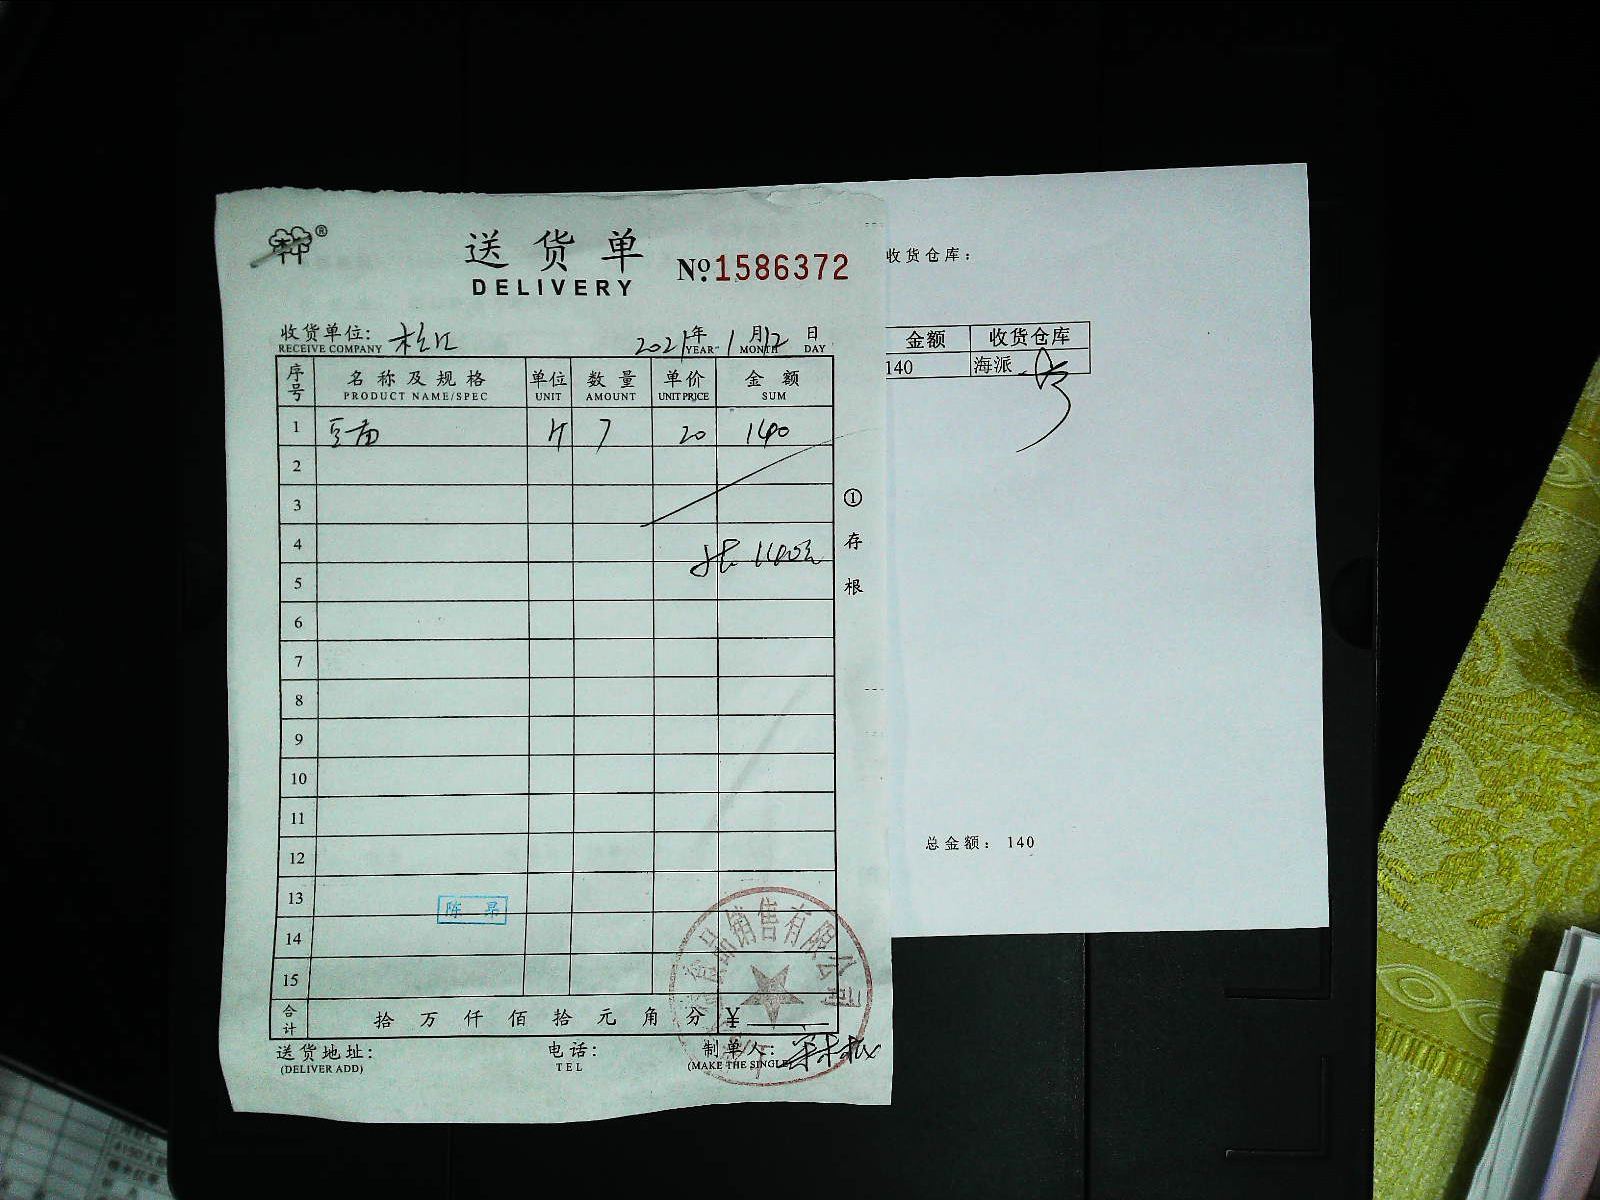 送货单
DELIVERY
№ 1586372
收货单位: 松江 2021年 1月12日
RECEIVE COMPANY YEAR MONTH DAY
序号 名称及规格 单位 数量 单价 金额
PRODUCT NAME/SPEC UNIT AMOUNT UNIT PRICE SUM
1 斤 7 20 140
2
3
4
140元
5
6
7
8
9
10
11
12
13
陈昂
14
15
合计 拾 万 仟 佰 拾 元 角 分 ¥
送货地址: 电话: 制单人:
(DELIVER ADD) TEL (MAKE THE SINGLE
①存根
食品销售有限公司
收货仓库:
金额 收货仓库
140 海派
总金额: 140